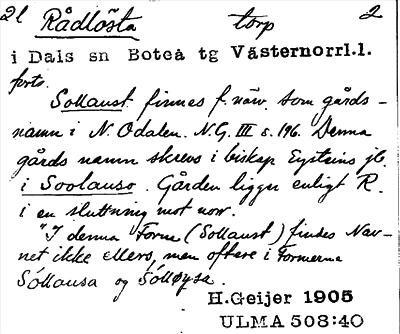 2l Rådlösta torp 2
i Dals sn Boteå tg Västernorrl.l.
forts.
Sollaust finnes f. närv. som gårds-
namn i N. Odalen. N.G. III s. 196. Denna
gårds namn skrevs i biskop Eysteins jb.
i Soolauso. Gården ligger enligt R.
i en sluttning mot nov.
"I denna Form (Sollaust) findes Nav-
net ikke ellers, men oftere i Formerne
Sóllausa og Sólløysa.
H.Geijer 1905
ULMA 508:40